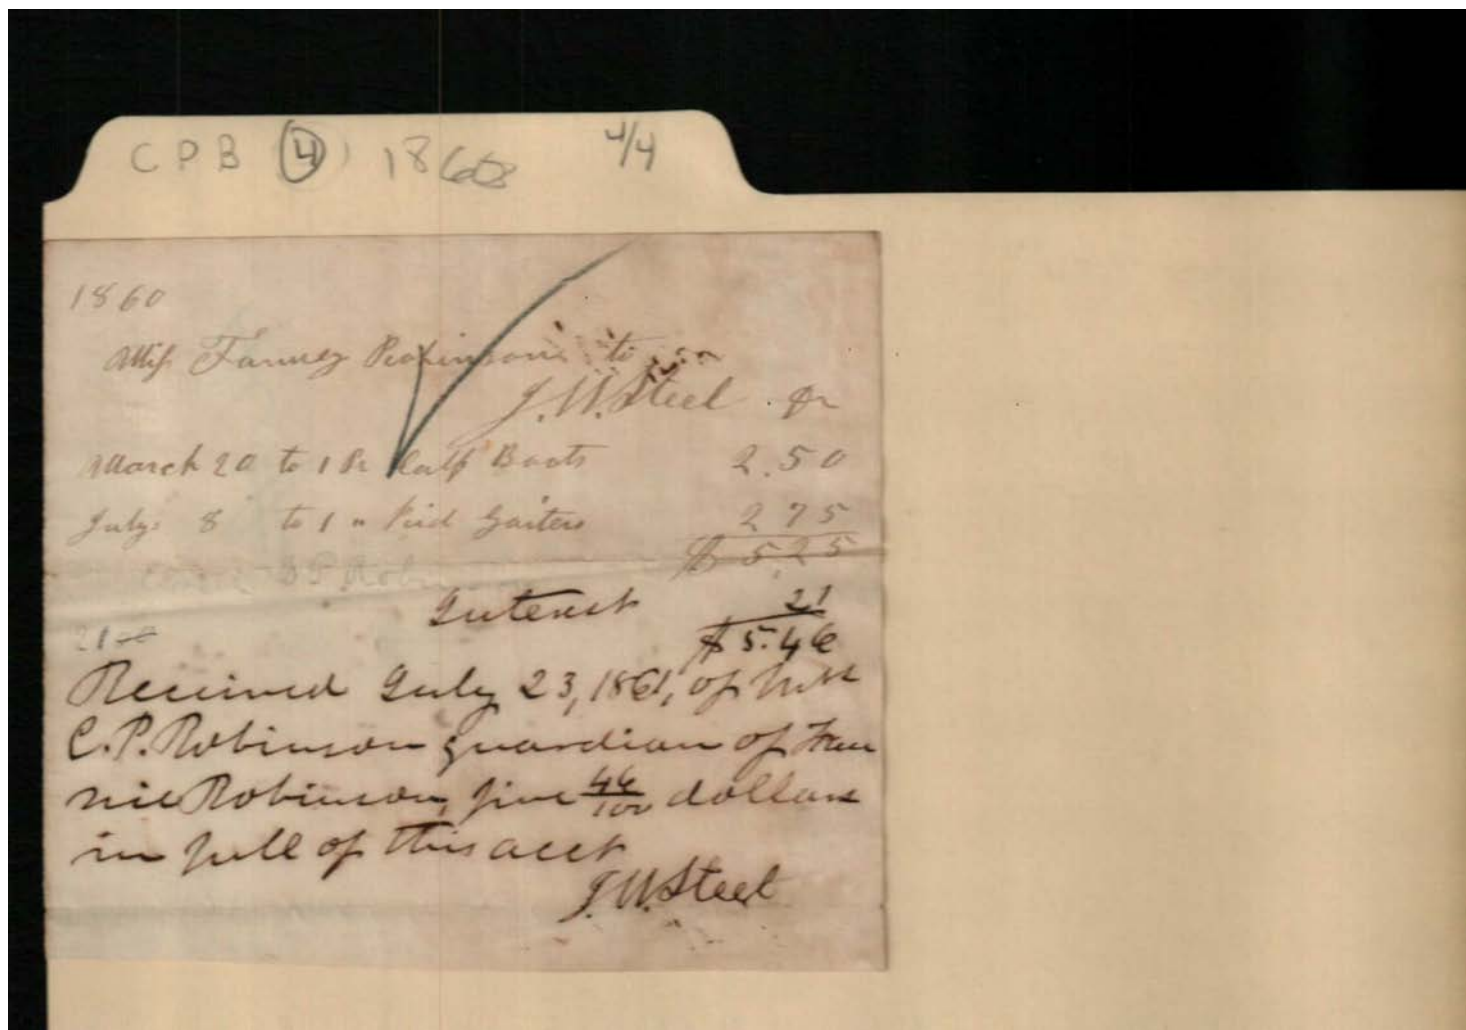 CPB 4 1860 4/4
1860
Miss Fanney Robinson to
J.W. Steel Dr
March 20 to 1 Pr Calf Boots 2.50
July 8 to 1 " Kid Gaiters 2 75
$ 5.25
Interest 21
$ 5.46
Received July 23, 1861, of
C.P. Robinson guardian of Fan
nie Robinson, five 46/100 dollars
in full of this acct
J.W. Steel